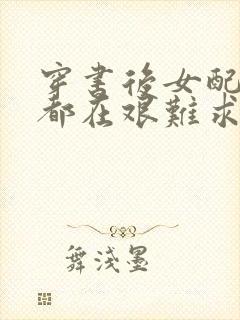 穿書後女配
都在艱難求
舞淺墨